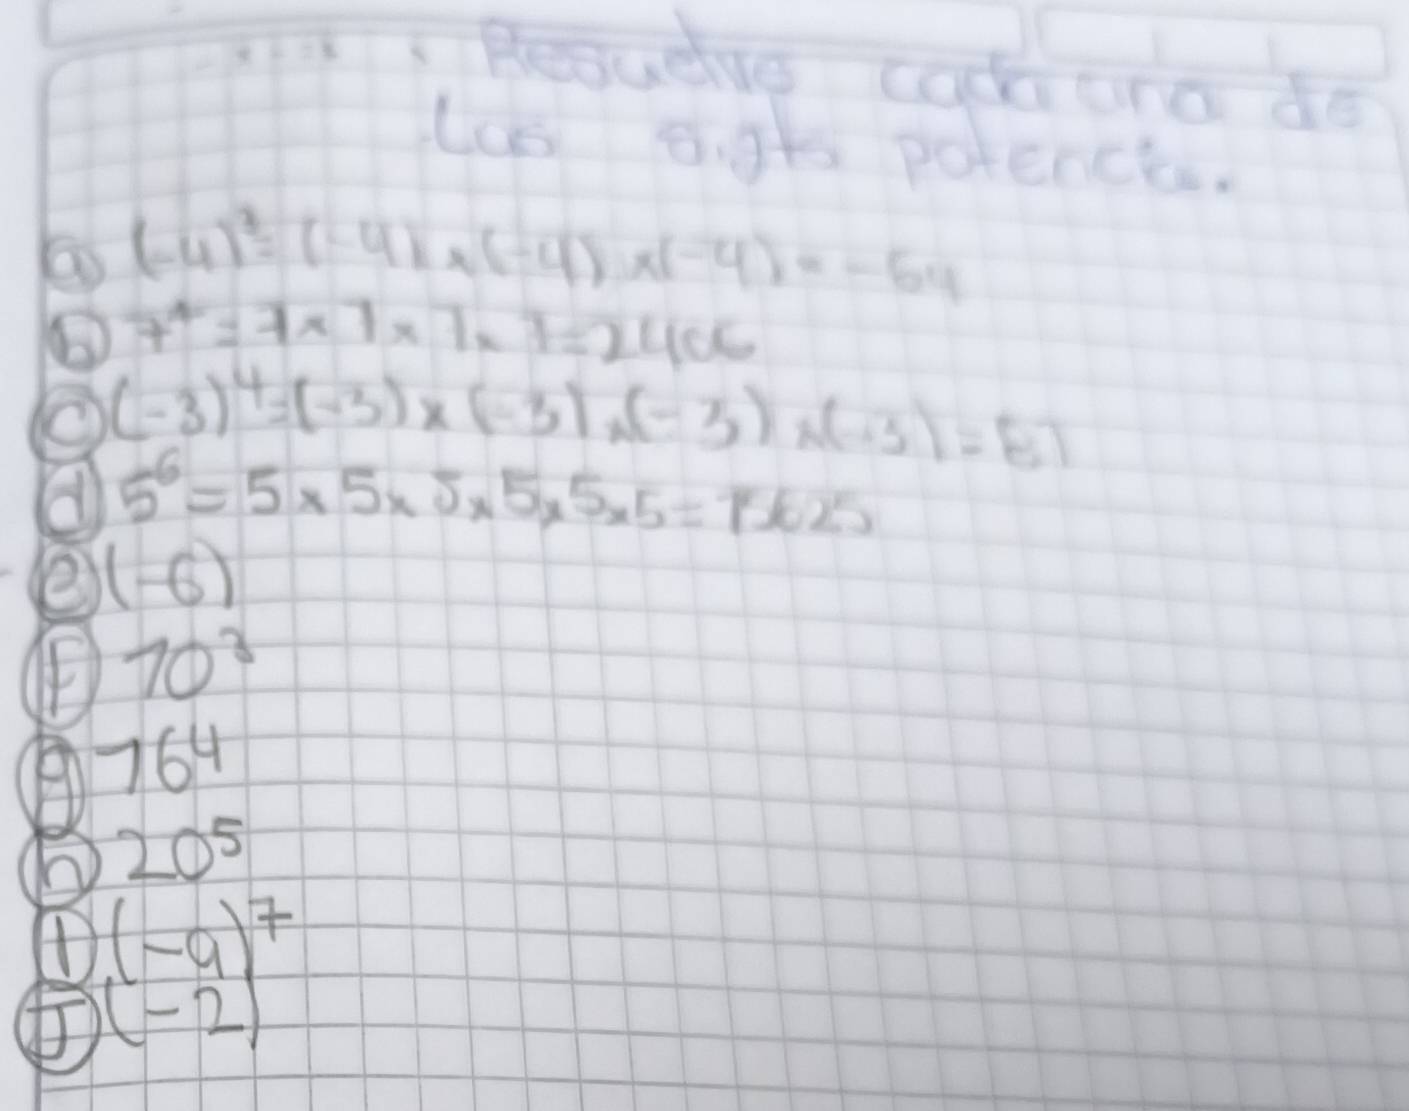 Resuelve cada una de
las sigts potencias.
a) (-4)³ = (-4) x (-4) x (-4) = -64
b) 7⁴ = 7 x 7 x 7 x 7 =
c) (-3)⁴ = (-3) x (-3) x (-3) x (-3) = 81
d) 5⁶ = 5 x 5 x 5 x 5 x 5 x 5 = 15625
e) (-6)
f) 10³
g) 16⁴
h) 20⁵
i) (-9)⁷
J) (-2)